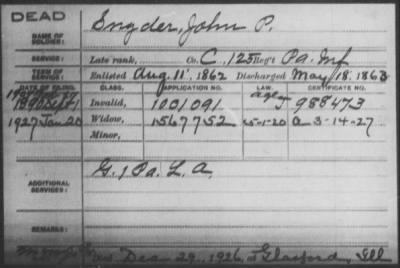 DEAD
Snyder, John P.
NAME OF SOLDIER:
SERVICE: Late rank, Co. C, 125 Reg't Pa. Inf
TERM OF SERVICE: Enlisted Aug. 11, 1862 Discharged May 18, 1863
DATE OF FILING. CLASS. APPLICATION NO. LAW. CERTIFICATE NO.
1890 Sept 1 Invalid, 1001091 J 988473
1927 Jan 20 Widow, 1567752 5-1-20 a 3-14-27
Minor,
ADDITIONAL SERVICES: G. 1 Pa. L. A.
REMARKS:
Died Dec 29, 1926, at Glasford, Ill